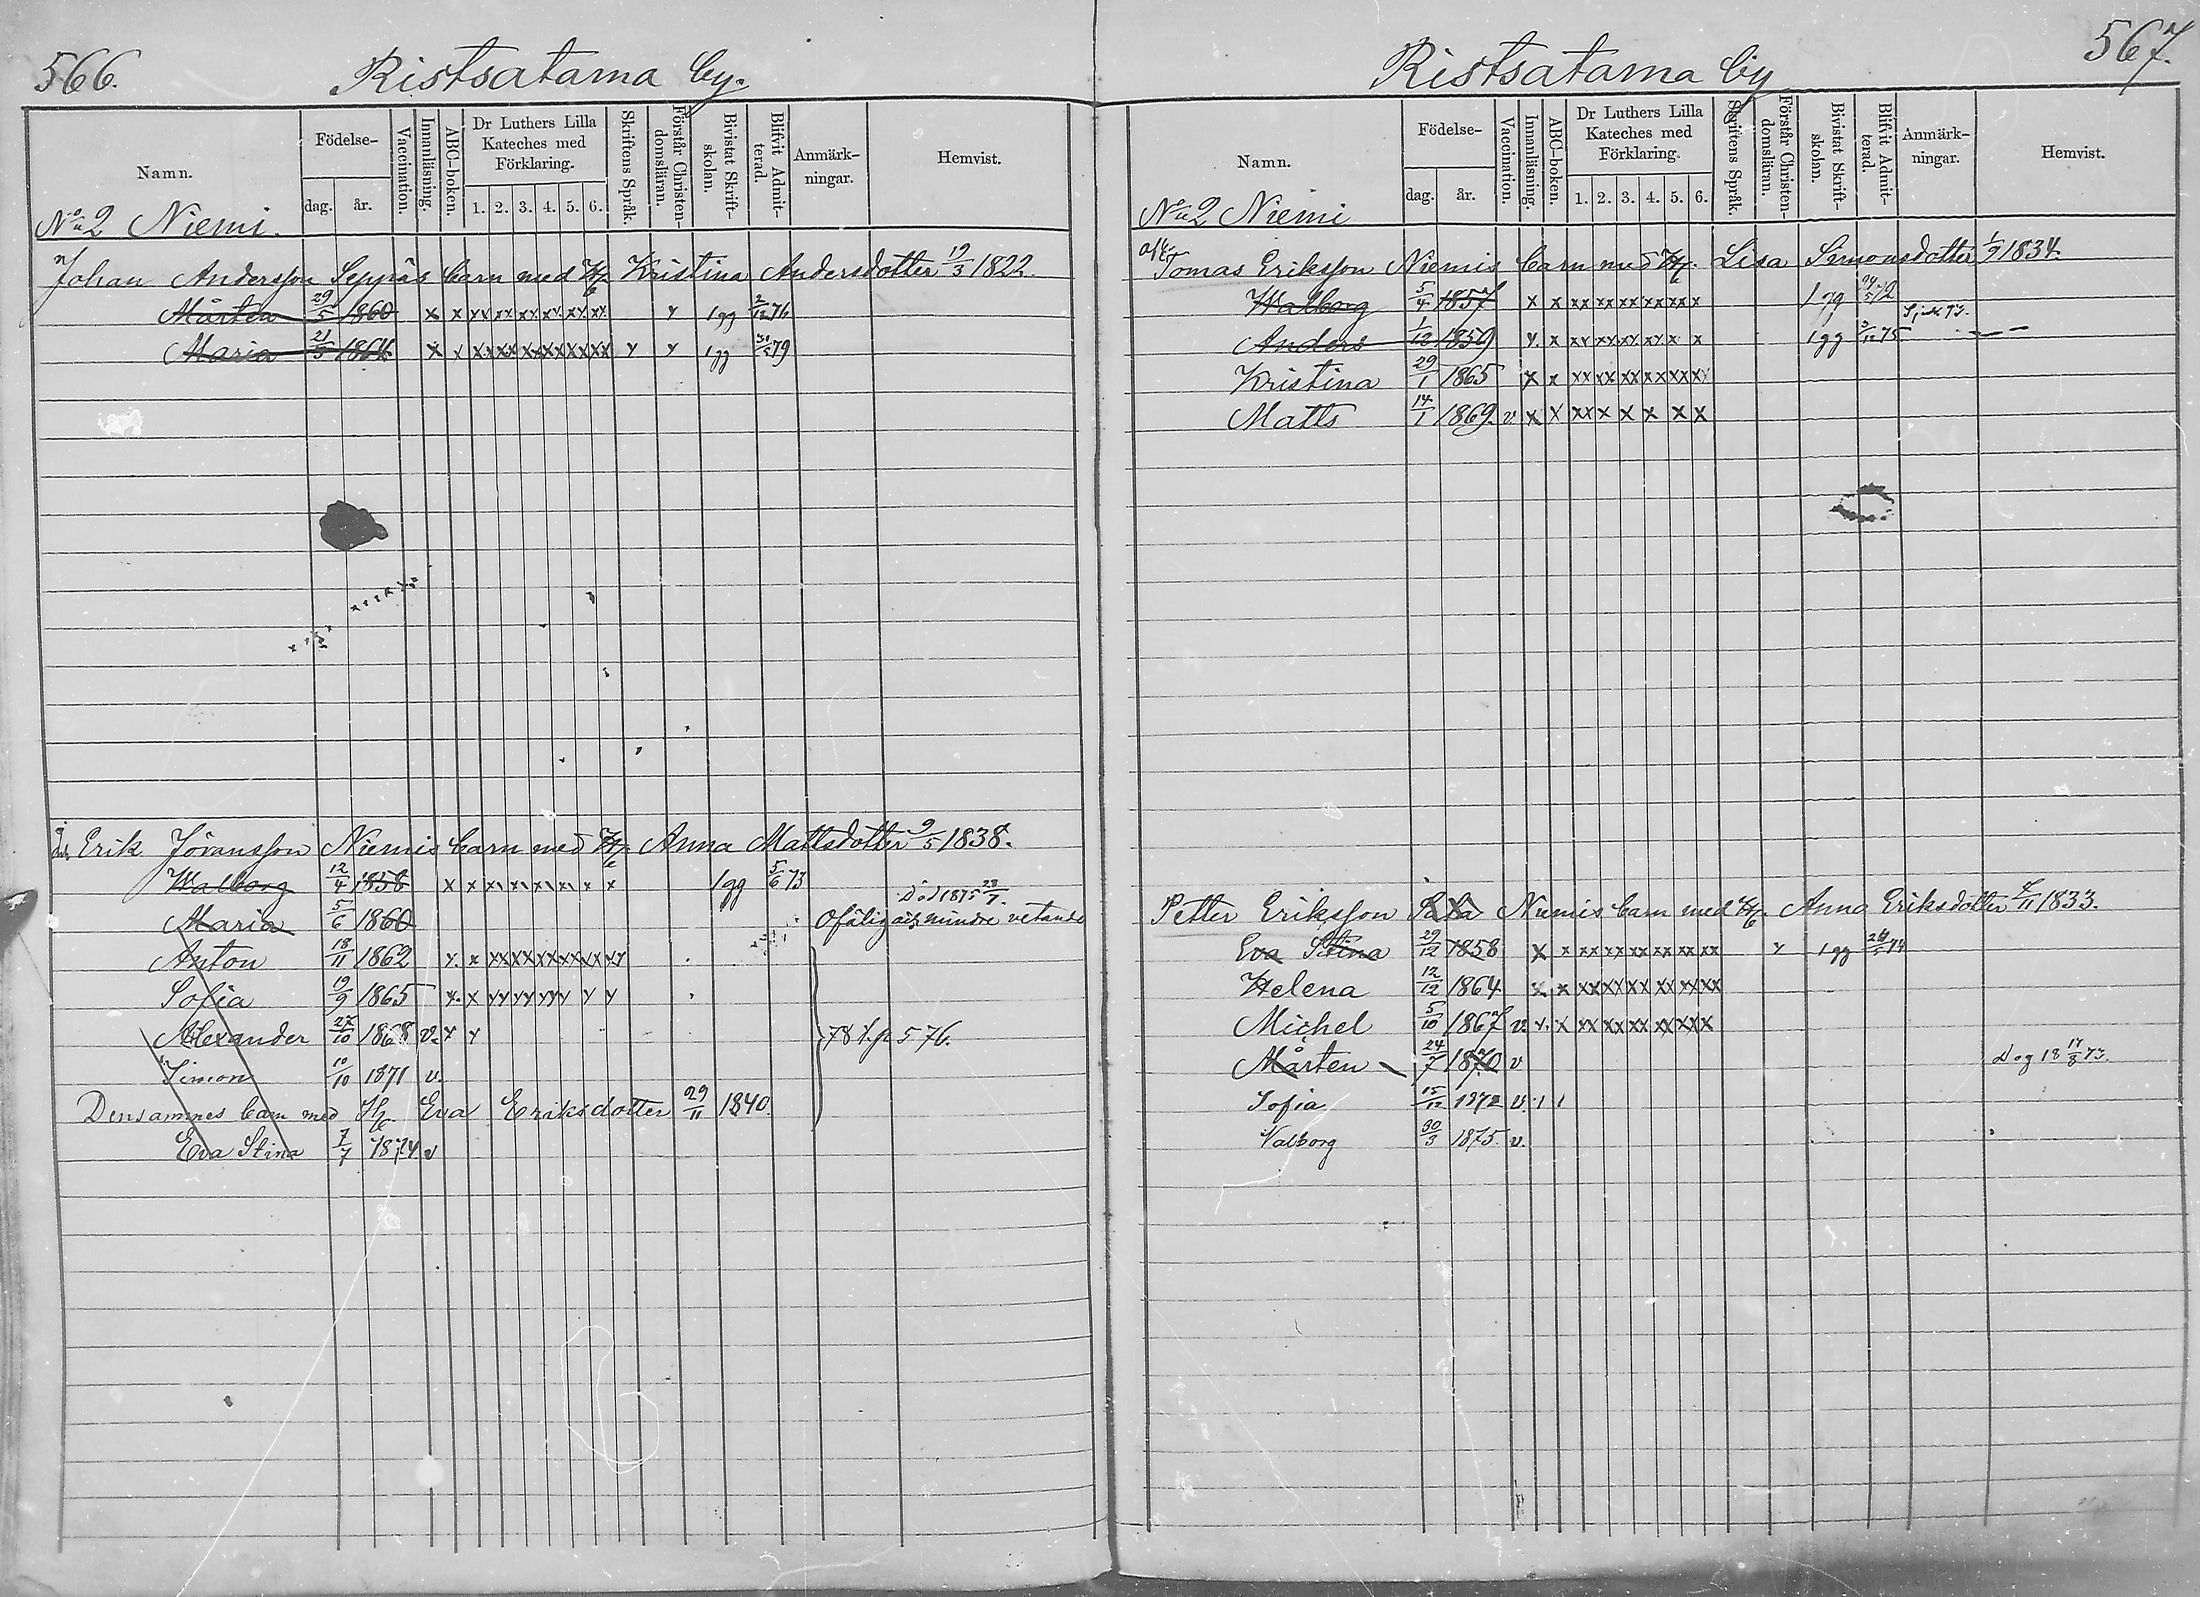 566.
Ristsatama by.
Namn.
Födelse-
dag. år.
Vaccination.
Innanläsning.
ABC-boken.
Dr Luthers Lilla Kateches med Förklaring.
1. 2. 3. 4. 5. 6.
Skriftens Språk.
Förstår Christendomsläran.
Bivistat Skriftskolan.
Blifvit Admitterad.
Anmärkningar.
Hemvist.
No 2 Niemi.
Johan Andersson Seppäs barn med H. Kristina Andersdotter 19/3 1822.
Mårten 29/5 1860 x x xx xx xx xx xx xx x 1 gg 2/12 76
Maria 21/5 1864 x x xx xx xx xx xx xx x x 1 gg 31/5 79
Erik Jöransson Niemis barn med H. Anna Mattsdotter 9/5 1838.
Walborg 12/4 1858 x x x x x x x x 1 gg 5/6 73 Död 1875 23/7.
Maria 5/6 1860 Ofälig och mindre vetande
Anton 18/11 1862 x x xx xx xx xx xx xx
Sofia 19/9 1865 x x xx xx xx x x x
Alexander 27/10 1868 v. x x 78 t.p. 576.
Simon 10/10 1871 v.
Densammes barn med H. Eva Eriksdotter 29/11 1840.
Eva Stina 7/7 1874 v
567.
Ristsatama by
Namn.
Födelse-
dag. år.
Vaccination.
Innanläsning.
ABC-boken.
Dr Luthers Lilla Kateches med Förklaring.
1. 2. 3. 4. 5. 6.
Skriftens Språk.
Förstår Christendomsläran.
Bivistat Skriftskolan.
Blifvit Admitterad.
Anmärkningar.
Hemvist.
No 2 Niemi
Tomas Eriksson Niemis barn med H. Lisa Simonsdotter 1/9 1834.
Walborg 5/4 1857 x x xx xx xx xx xx x 1 gg 72
Anders 1/12 1859 x x xx xx xx xx x x 1 gg 75
Kristina 29/1 1865 x x xx xx xx xx xx xx
Matts 14/1 1869. v. x x xx x x x x x
Petter Eriksson Niemis barn med H. Anna Eriksdotter 1833.
Eva Stina 29/12 1858 x x xx xx xx xx xx xx x 1 gg 74
Helena 12/12 1864 x x xx xx xx xx xx xx
Michel 5/10 1867 v. x x xx xx xx xx xx x
Mårten 24/7 1870 v Dog 18 17/8 73.
Sofia 15/12 1872 v. 1 1
Valborg 30/3 1875. v.